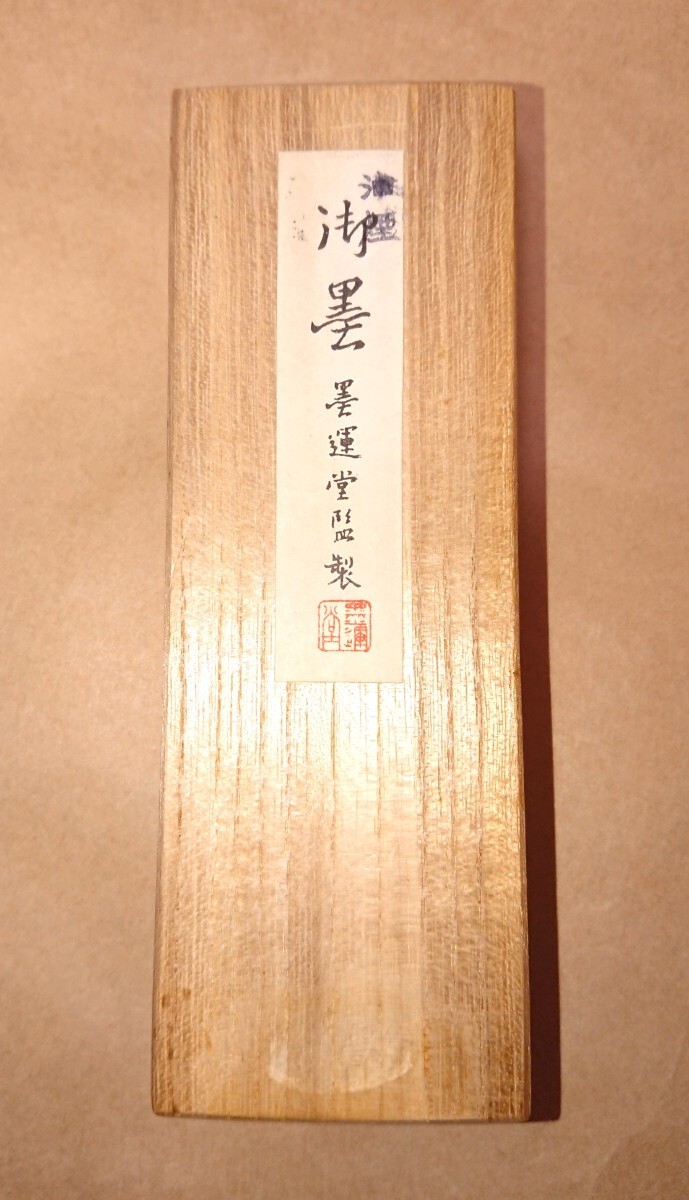 油煙
御墨
墨運堂監製